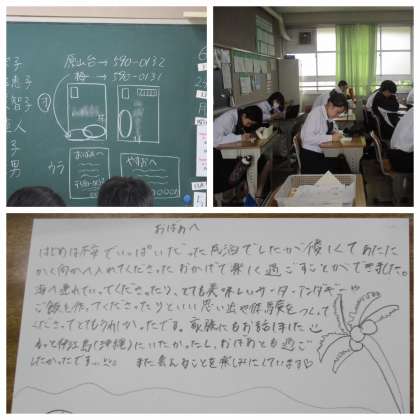 子
恵子
智子
人
子
男
原山台→590-0132
梅→590-0131
オ
ウラ
おばぁへ
やすおへ
〒590-0132
おばぁへ
はじめは不安でいっぱいだった民泊でしたが優しくてあたた
かく向かえ入れてくださったおかげで楽しく過ごすことができました。
海へ連れていってくださったり、とても美味しいサーターアンダギーや
ご飯を作ってくださったりといい思い出や体験をつくって
くださってとてもうれしかったです。家族にもお話しました
もっと伊江島(沖縄)にいたかったし、おばぁとも過ご
したかったです。 また会えることを楽しみにしています